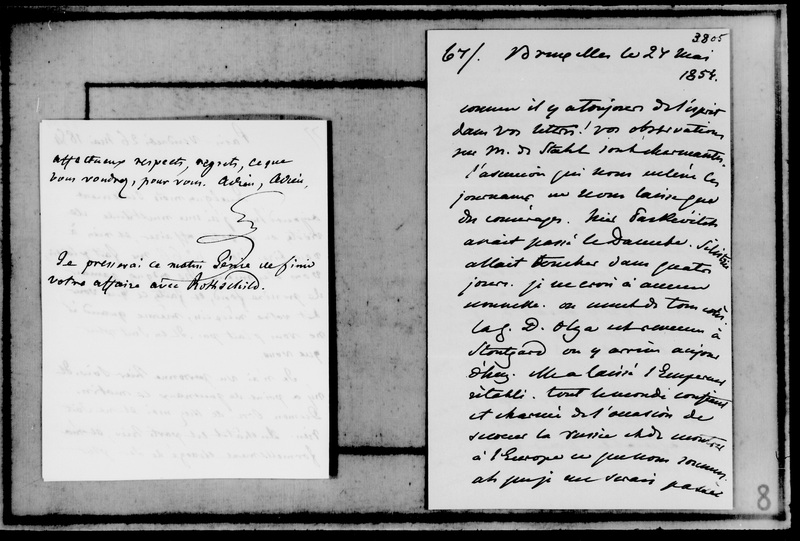 affectueux respects, regrets, ce que
vous voudrez, pour vous. Adieu, Adieu.
G
Je presserai ce matin Génie de finir
votre affaire avec Rothschild.
3805
67/. Bruxelles le 24 mai
1854.
comme il y a toujours de l'esprit
dans vos lettres! vos observations
sur M. de Stahl sont charmantes.
l'ascension qui nous enlève les
journaux ne nous laisse que
des commérages. hier Paskéwitch
avait passé le Danube. Silistrie
allait tomber dans quatre
jours. je ne crois à aucune
nouvelle. on ment de tous côtés.
la g. D. Olga est revenue à
Stoutgard on y arrive aujour
d'huy. Elle a laissé l'Empereur
rétabli. tout le monde confiant
et charmé de l'occasion de
secouer la russie et de montrer
à l'Europe ce que nous sommes.
ah que je me serais passée
8